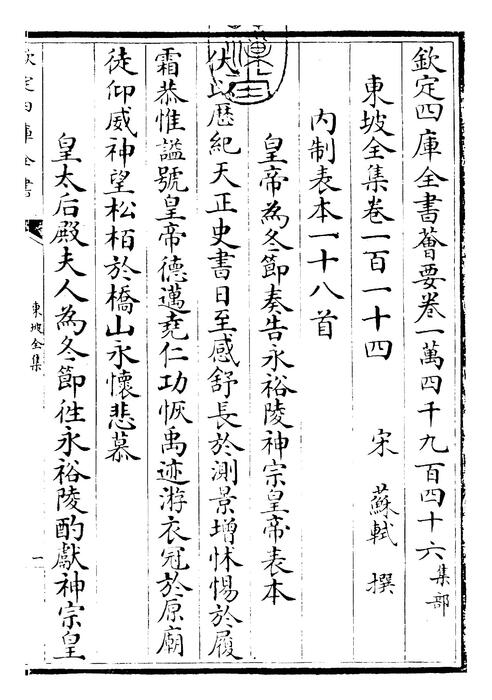 欽定四庫全書薈要卷一萬四千九百四十六集部
東坡全集卷一百一十四
宋 蘇軾 撰
内制表本一十八首
皇帝為冬節奏告永裕陵神宗皇帝表本
伏以歴紀天正史書日至感舒長於測景增怵惕於履
霜恭惟謚號皇帝德邁堯仁功恢禹迹游衣冠於原廟
徒仰威神望松柏於橋山永懷悲慕
皇太后殿夫人為冬節徃永裕陵酌獻神宗皇
欽定四庫全書
東坡全集
一